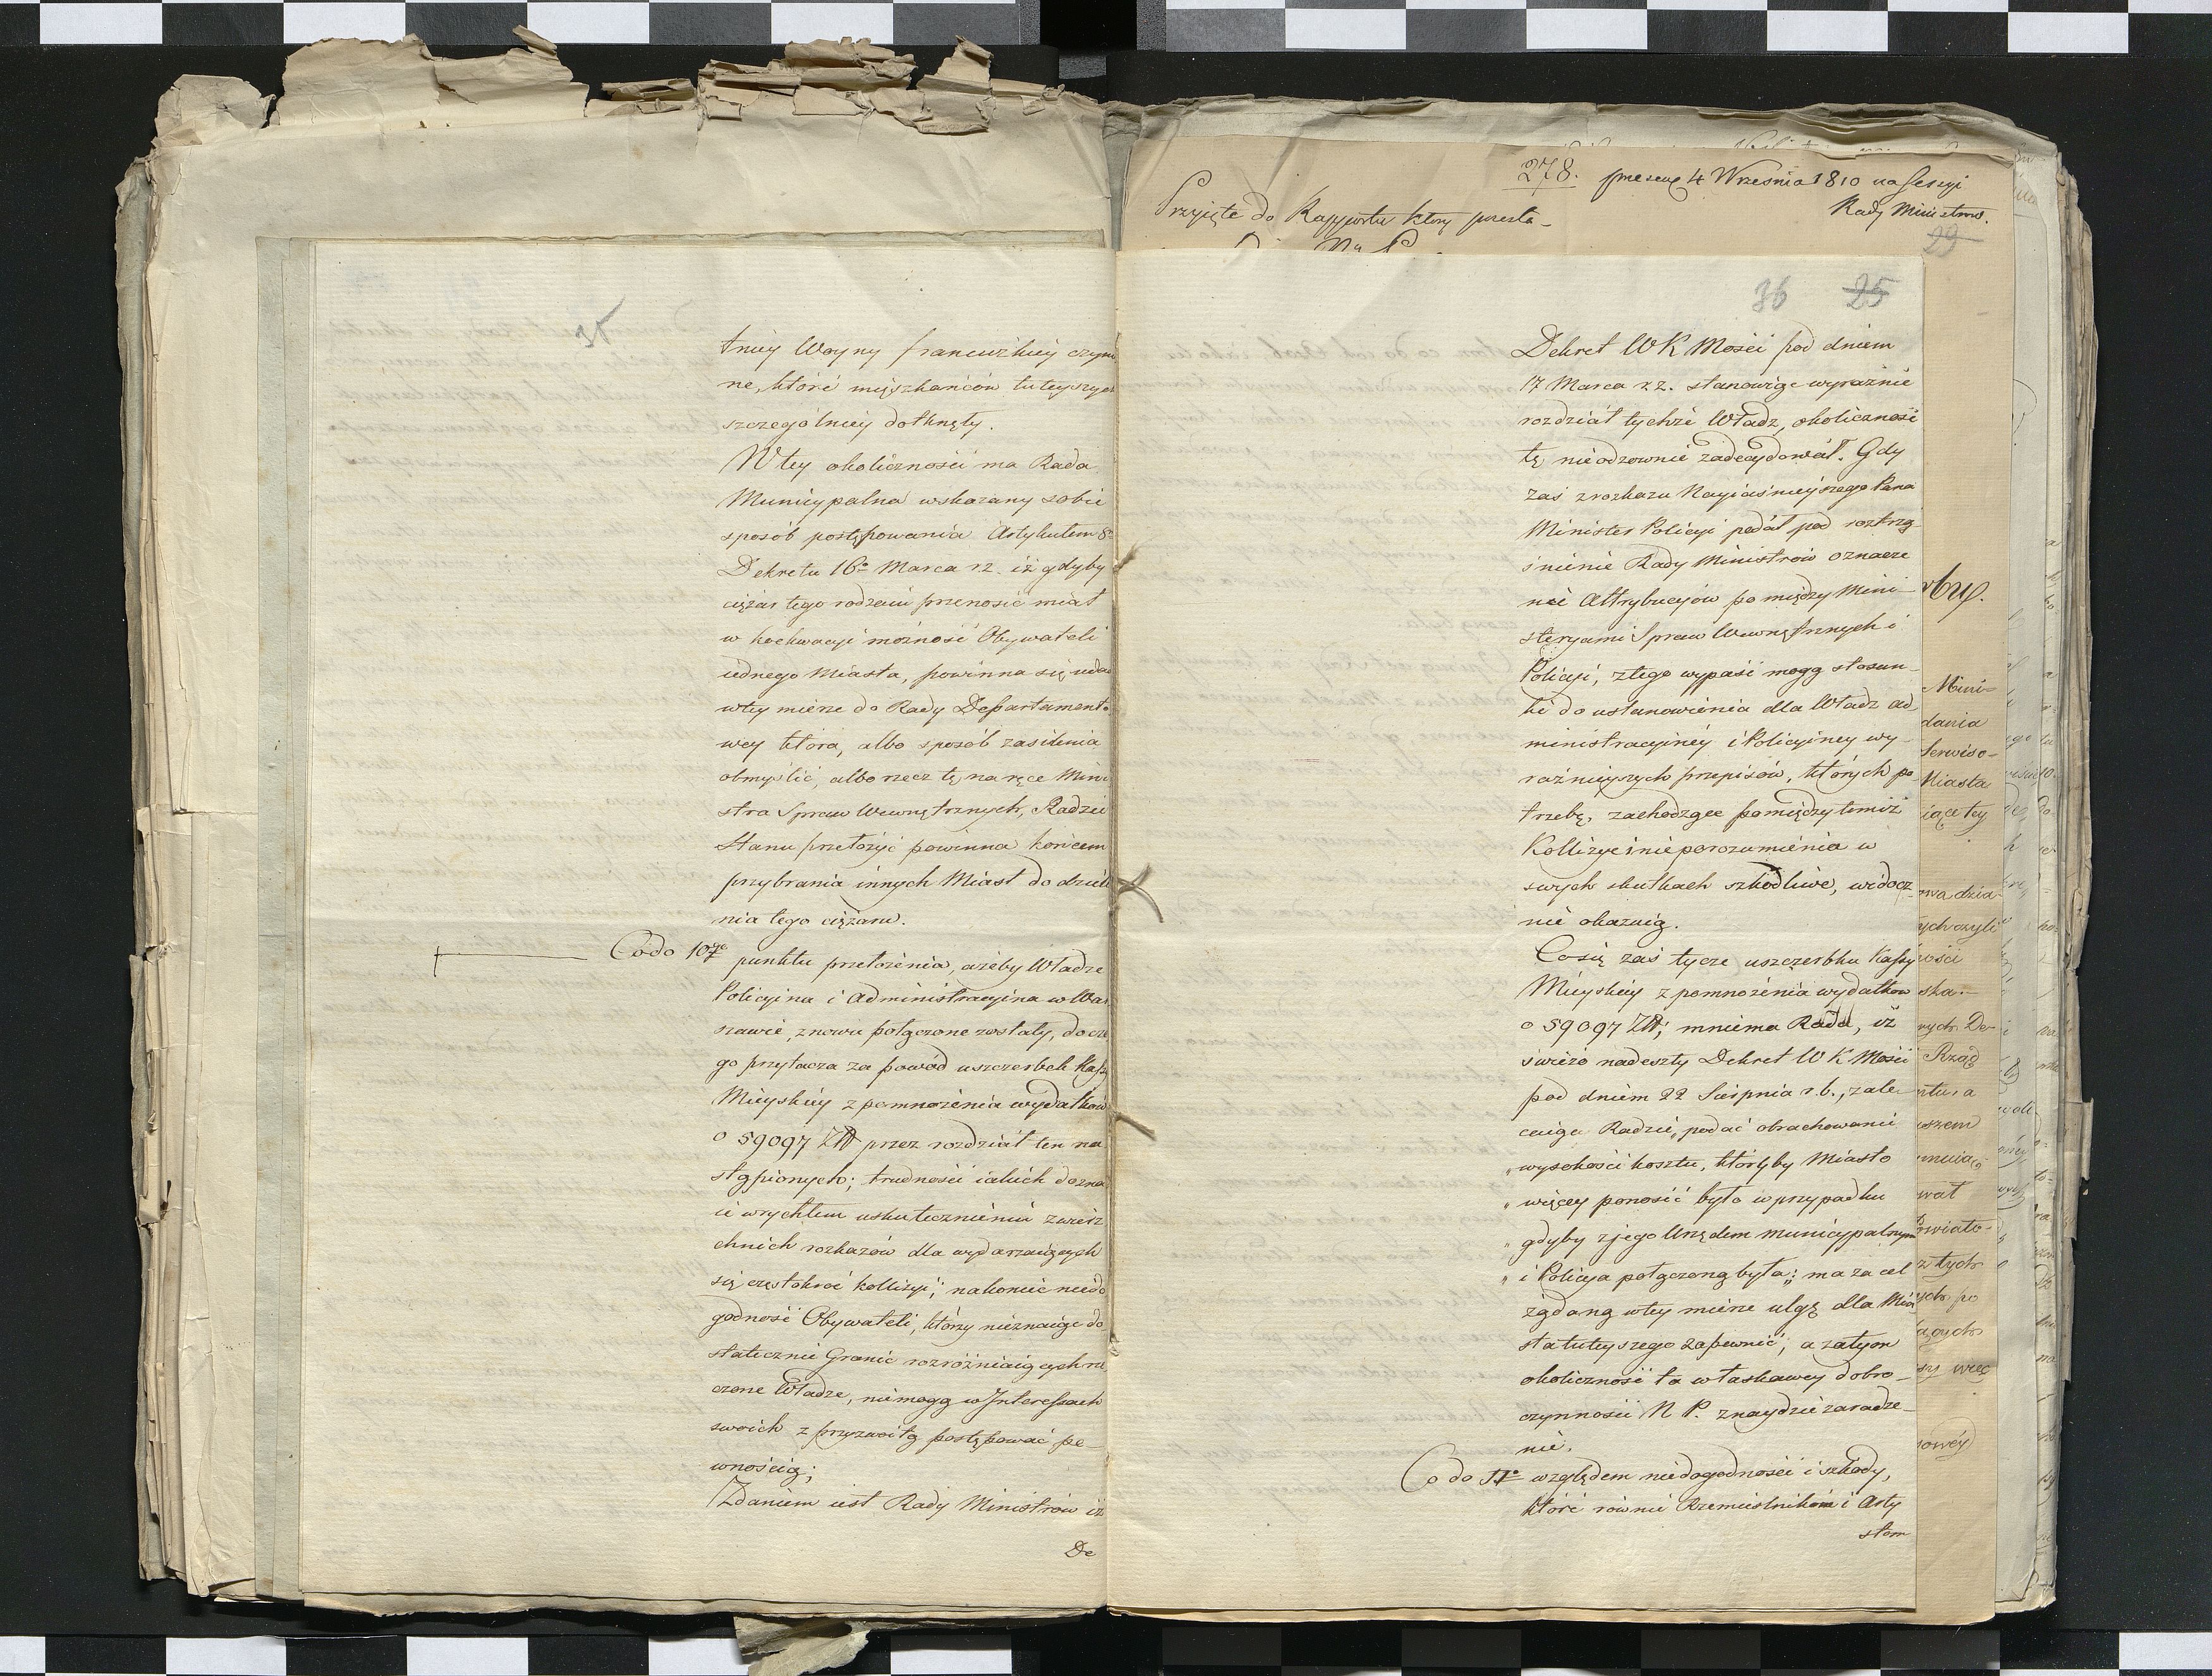 35
tniey Woyny francuzkiey czyn
ne, które mięszkańców tuteyszych
szczególniey dotknęły.
W tey okoliczności ma Rada
Municypalna wskazany sobie
sposób postępowania Artykułem 8º
Dekretu 16º Marca r z. iż gdyby
ciężar tego rodzaiu przenosić miał
w kockwacyi możność Obywateli
iednego Miasta, powinna się udać
w tey mierze do Rady Departamento
wey która, albo sposób zasilenia
obmyślić, albo rzecz tę na ręce Mini
stra Spraw Wewnętrznych, Radzie
Stanu przełożyć powinna końcem
przybrania innych Miast do dziele
nia tego ciężaru.
Co do 10go punktu przełożenia, ażeby Władze
Policyina i Administracyina w War
szawie, znowu połączone zostały, do cze
go przytacza za powód uszczerbek Kassy
Mieyskiey z pomnożenia wydatków
o 59097 Zł przez rozdział ten na
stąpionych; trudności iakich dozna
ie w rychłem uskutecznieniu zwierz
chnich rozkazów dla wydarzaiących
się częstokroć kollizyi; nakoniec niedo
godność Obywateli, którzy nieznaiąc do
statecznie Granic rozróżniaiących rze
czone Władze, niemogą w Interessach
swoich z przyzwoitą postępować pe-
wnością;
Zdaniem iest Rady Ministrów iż
De
278. 4 Września 1810 na Sessyi
Rady Ministrow.
Przyięte do Rapportu który przesła-
29
36 25
Dekret W K Mości pod dniem
17 Marca r z. stanowiąc wyraźnie
rozdział tychże Władz, okoliczność
tę nieodzownie zadecydował. Gdy
zaś z rozkazu Nayiaśnieyszego Pana
Minister Policyi podał pod roztrzą
śnienie Rady Ministrów oznacze
nie Attrybucyów pomiędzy Mini-
steryami Spraw Wewnętrznych i
Policyi, z tego wypaść mogą stosun-
ki do ustanowienia dla Władz ad-
ministracyiney i Policyiney wy-
raźnieyszych przepisów, których po-
trzebę, zachodzące pomiędzy temiż
Kollizye i nieporozumienia w
swych skutkach szkodliwe, widocz-
nie okazuią.
Co się zaś tycze uszczerbku Kassy
Mieyskiey z pomnożenia wydatków
o 59097 Zł; mniema Rada, iż
świeżo nadeszły Dekret W K Mości
pod dniem 22 Sierpnia r. b., zale-
caiąc Radzie „podać obrachowanie
„wysokości kosztu, któryby Miasto
„więcey ponosić było w przypadku
„gdyby z jego Urzędem municypalnym
„i Policya połączoną była„; ma za cel
żądaną w tey mierze ulgę dla Mia
sta tuteyszego zapewnić; a zatym
okoliczność ta w łaskawey dobro-
czynności N P. znaydzie zaradze-
nie.
Co do IIº względem niedogodności i szkody,
które równie Rzemieślnikóm i Arty
stom
Mini=
dania
Serwiso-
Miasta
iące tey
Rząd